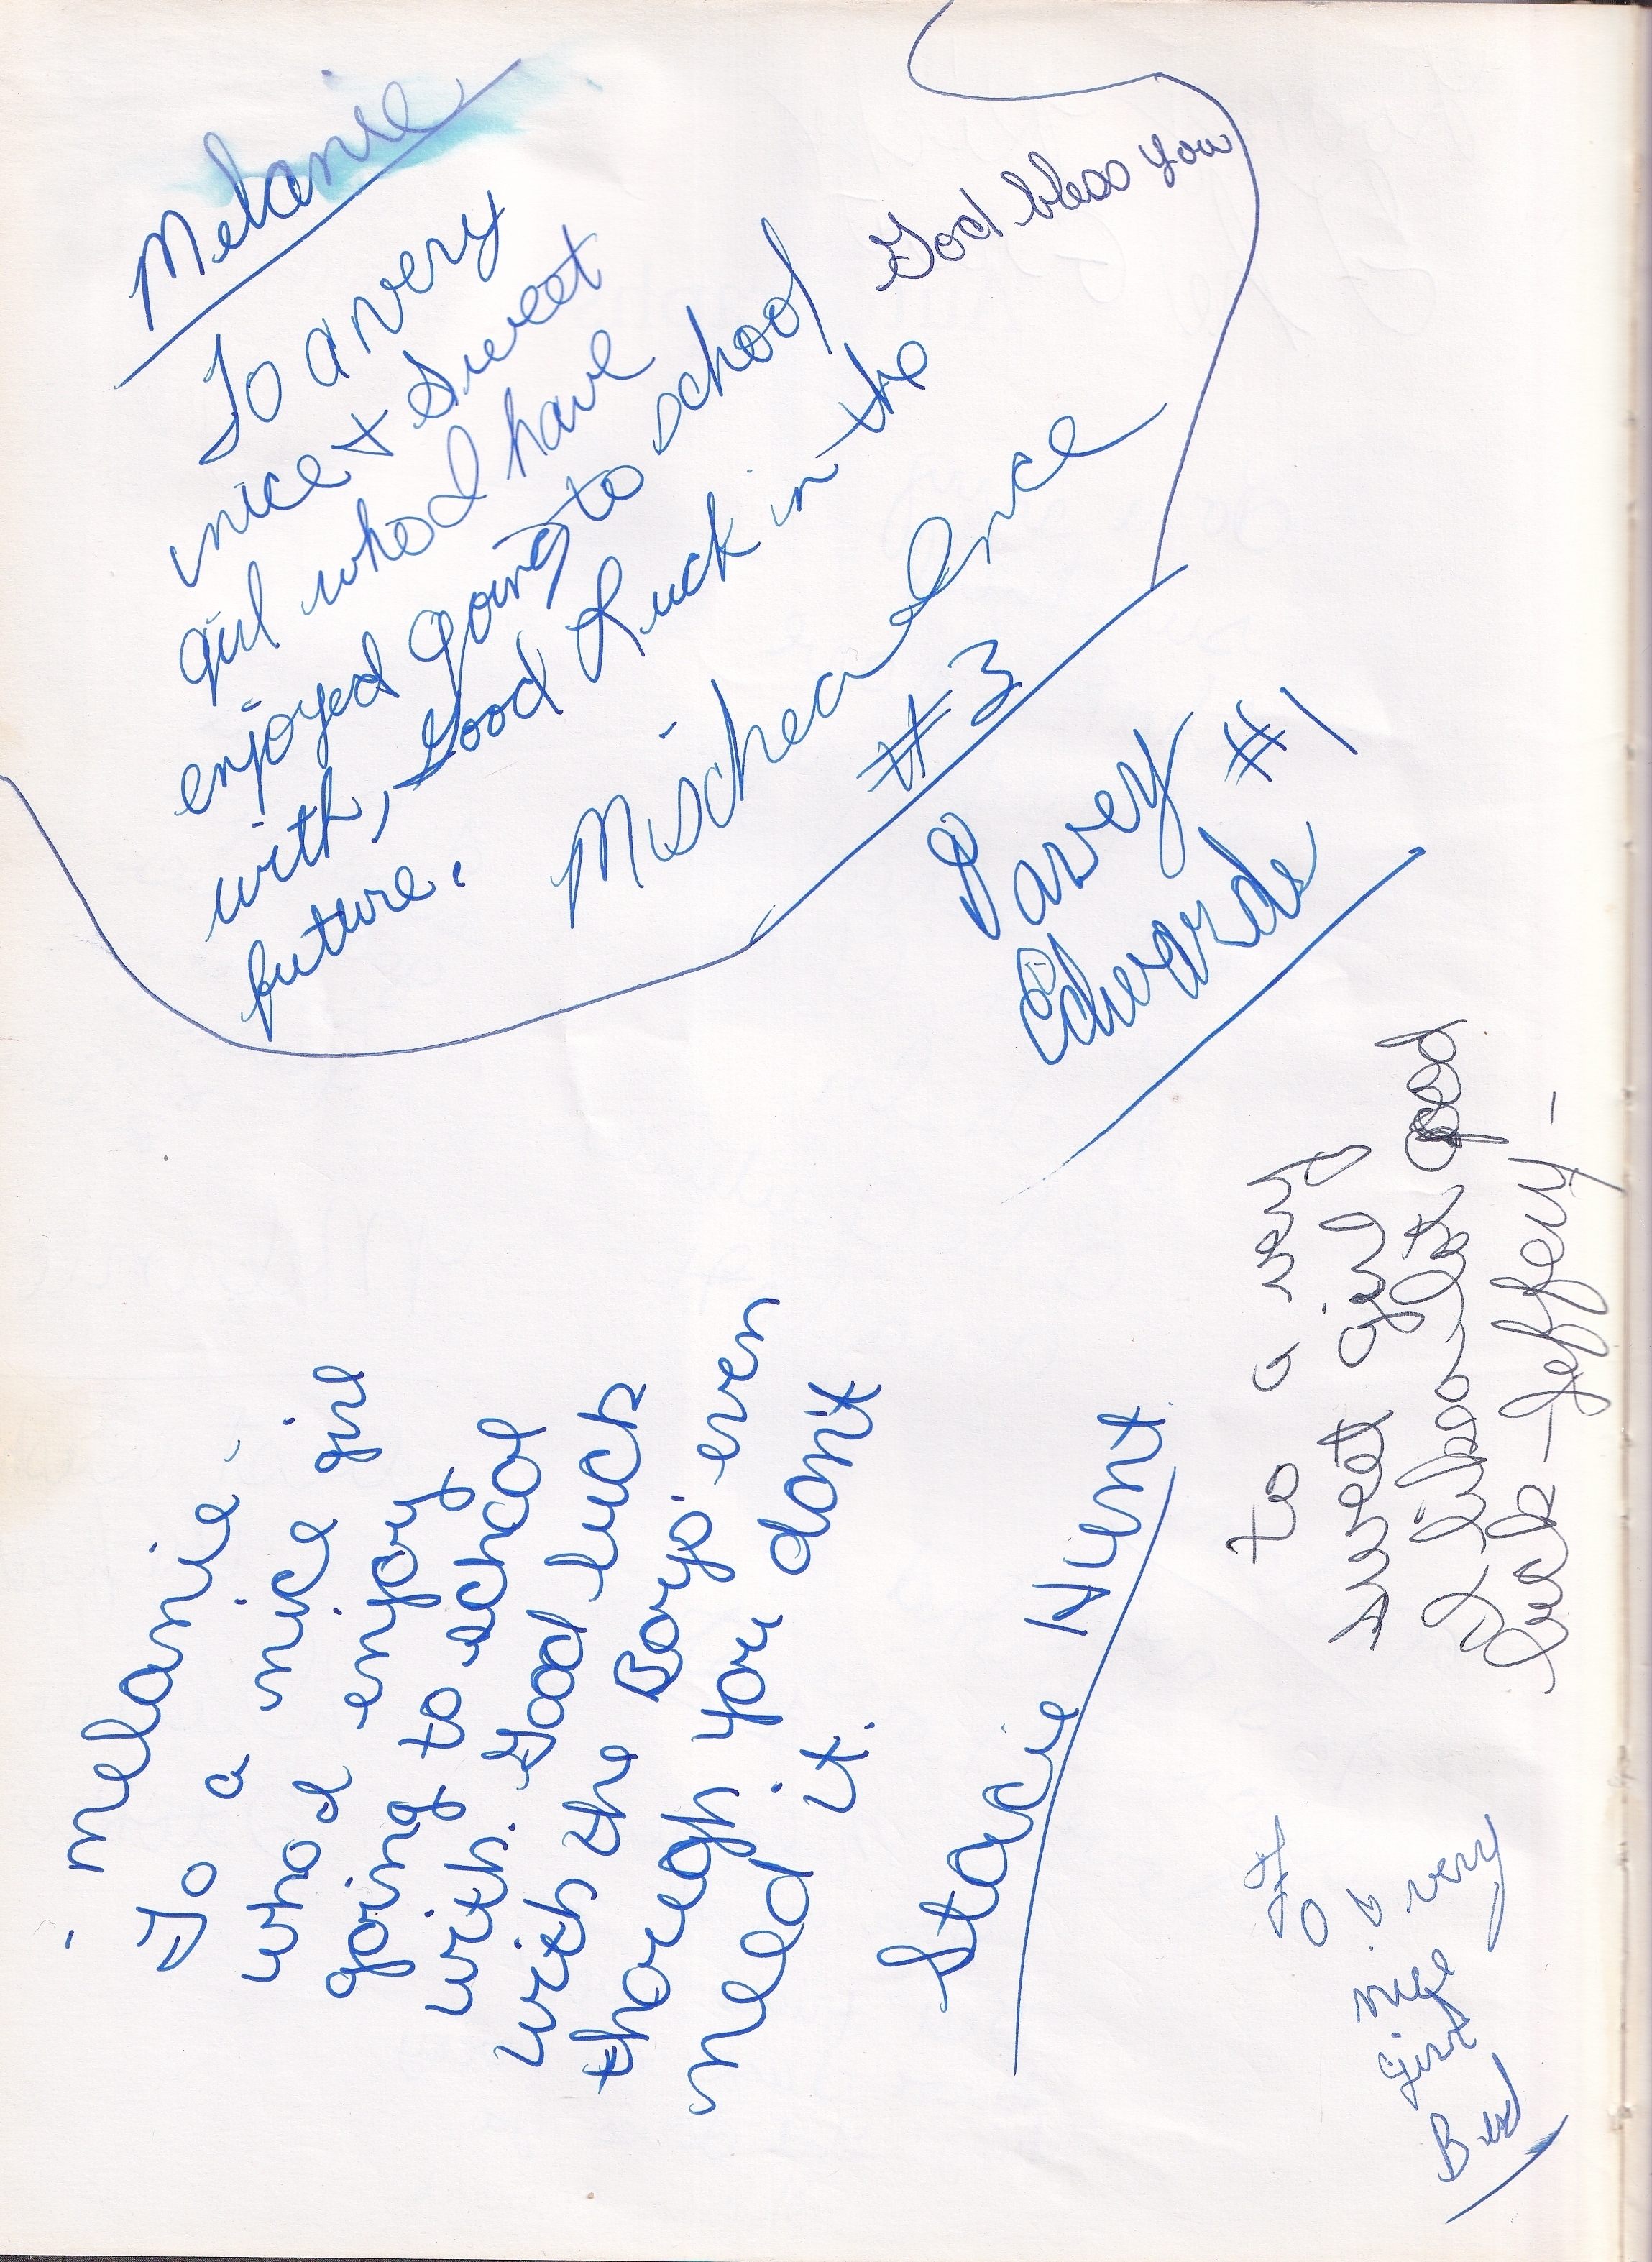 Melanie
To a very
nice + Sweet
girl who I have
enjoyed going to school
with, Good Luck in the
future.
God bless you
Micheal Ince
#3
Davey #1
Edwards
melanie -
To a nice girl
who I enjoy
going to school
with. Good luck
with the Boys even
thoreagh you don't
need it.
Stacie Hunt
to a very
sweet girl
I like a lot good
luck - Jeffery -
To
a very
nice
girl